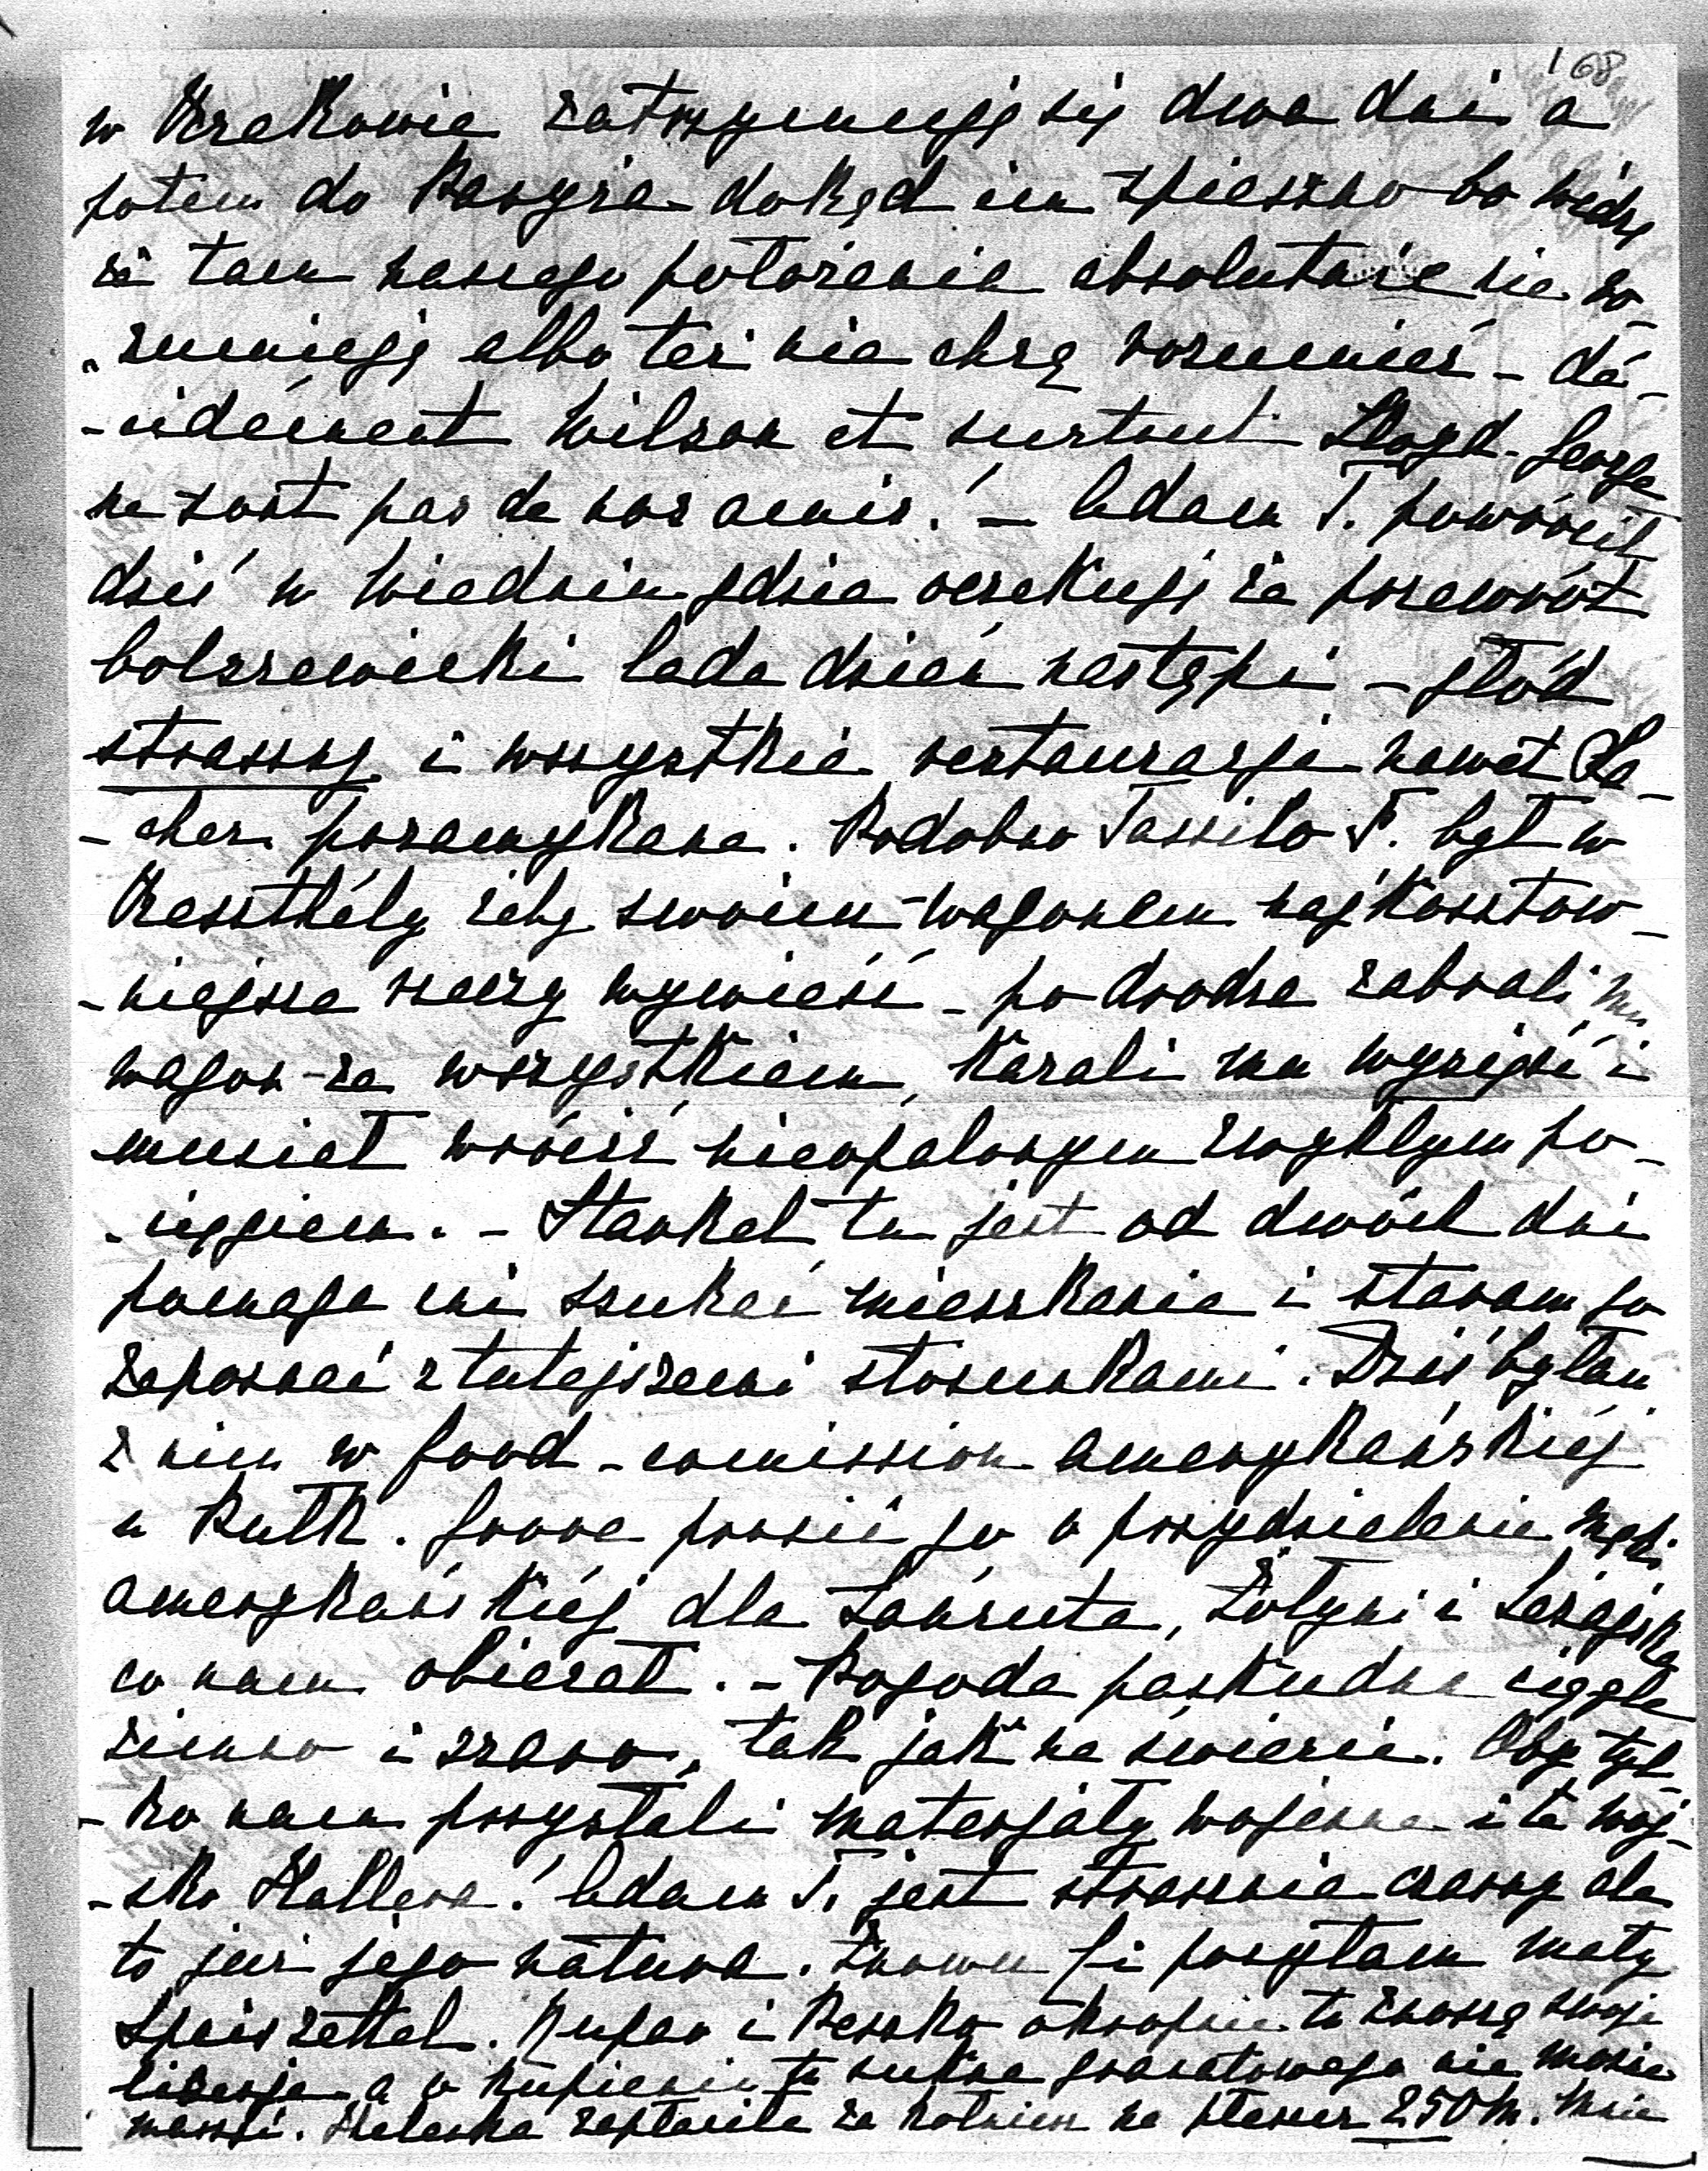 168
w Krakowie zatrzymuję się dwa dni a
potem do Paryża dokąd im spieszno bo widzę
że tam naszego położenia absolutnie nie ro-
-zumieją albo też nie chcą rozumieć - dé-
-cidément Wilson et surtout Lloyd-George
ne sont pas de nos amis! - Adam T. powrócił
dziś w Wiedniu gdzie oczekują że przewrót
bolszewicki lada dzień nastąpi - głód
straszny i wszystkie restauracje nawet Sa-
-cher pozamykane. Podobno Tassilo F. był w
Keszthély żeby swoim wagonem najkosztow-
-niejsze rzeczy wywieść - po drodze zabrali mu
wagon ze wszystkiem, kazali mu wysiąść i
musiał wrócić nieopalonym zwykłym po-
-ciągiem. - Stankel tu jest od dwóch dni
pomaga mi szukać mieszkania i staram go
zapoznać z tutejszemi stosunkami. Dziś byłam
z nim w food-comission amerykańskiéj
u Pułk. Grove prosić go o przydzielenie mąki
amerykańskiéj dla Łańcuta, Żołyni i Leżajska
co nam obiecał. - Pogoda paskudna ciągle
zimno i szaro, tak jak na świecie. Oby tyl-
-ko nam przysłali materjały wojenne i to woj-
-sko Hallera! Adam T. jest strasznie czarny ale
to już jego natura. Znowu Ci posyłam mały
Speiszettel. i Peszko okropnie tu znoszą swoje
liberje a o kupieniu tu sukna granatowego nie można
marzyć. Helenka zapłaciła za kołnierz na 250 M. Mnie